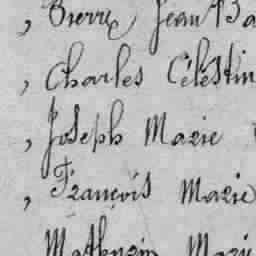 , Pierre Jean Ba
, Charles Célestin
, Joseph Marie
, François Marie
Mathurin Marie